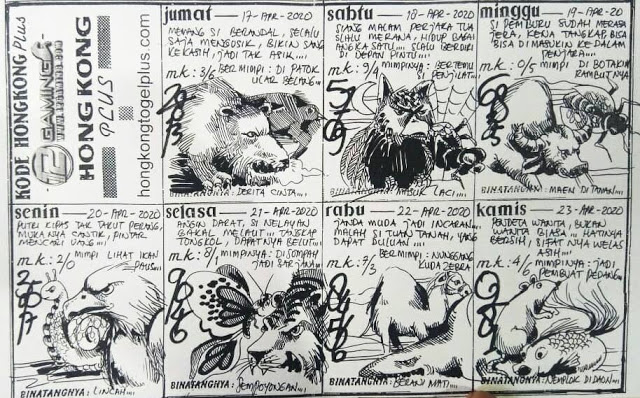 KODE HONGKONG Plus
GAMING
HONG KONG
PLUS
hongkongtogelplus.com
jumat 17-APR-2020
MEMANG SI BERANDAL, SELALU
SAJA MENGUSIK, BIKIN SANG
KEKASIH, JADI TAK ASIK....
mk: 3/5 BERMIMPI: DI PATOK
ULAR BELANG....
BINATANGNYA: DERITA CINTA....
sabtu 18-APR-2020
SIANG MALAM PERJAKA TUA
SLALU MERANA, HIDUP BAGAI
ANGKA SATU.... SLALU BERDIRI
DI DEPAN PINTU....
mk: 9/4 MIMPINYA: BERTEMU
SI PENJILAT....
BINATANGNYA: MABUK LACI....
minggu 19-APR-2020
SI PEMBURU SUDAH MERASA
JERA, KENA TANGKAP BISA
BISA DI MASUKIN KE DALAM
PENJARA....
mk: 0/5 MIMPI DI BOTAKIN
RAMBUTNYA
BINATANGNYA: MAEN DI TAMAN....
senin 20-APR-2020
PUTRI KIPAS TAK TAKUT PERANG,
MUKANYA CANTIK, PINTAR
MENCARI UANG....
mk: 2/6 MIMPI LIHAT IKAN
PAUS....
BINATANGNYA: LINCAH....
selasa 21-APR-2020
ANGIN DARAT, SI NELAYAN
BAKAL MELAUT.... TANGKAP
TONGKOL, DAPATNYA BELUT....
mk: 8/1 MIMPINYA: DISUMPAH
JADI SARJANA
BINATANGNYA: SEMPOYONGAN....
rabu 22-APR-2020
JANDA MUDA JADI INCARAN
MALAH SI TUAN TANAH, YANG
DAPAT DULUAN....
mk: 7/3 BERMIMPI: NUNGGANG
KUDA ZEBRA
BINATANGNYA: BERANI MATI....
kamis 23-APR-2020
PENDETA WANITA, BUKAN
WANITA BIASA.. HATINYA
BERSIH, SIFATNYA WELAS
ASIH....
mk: 4/6 MIMPINYA: JADI
PEMBUAT PEDANG..
BINATANGNYA: NEMPLOK DI DAUN....